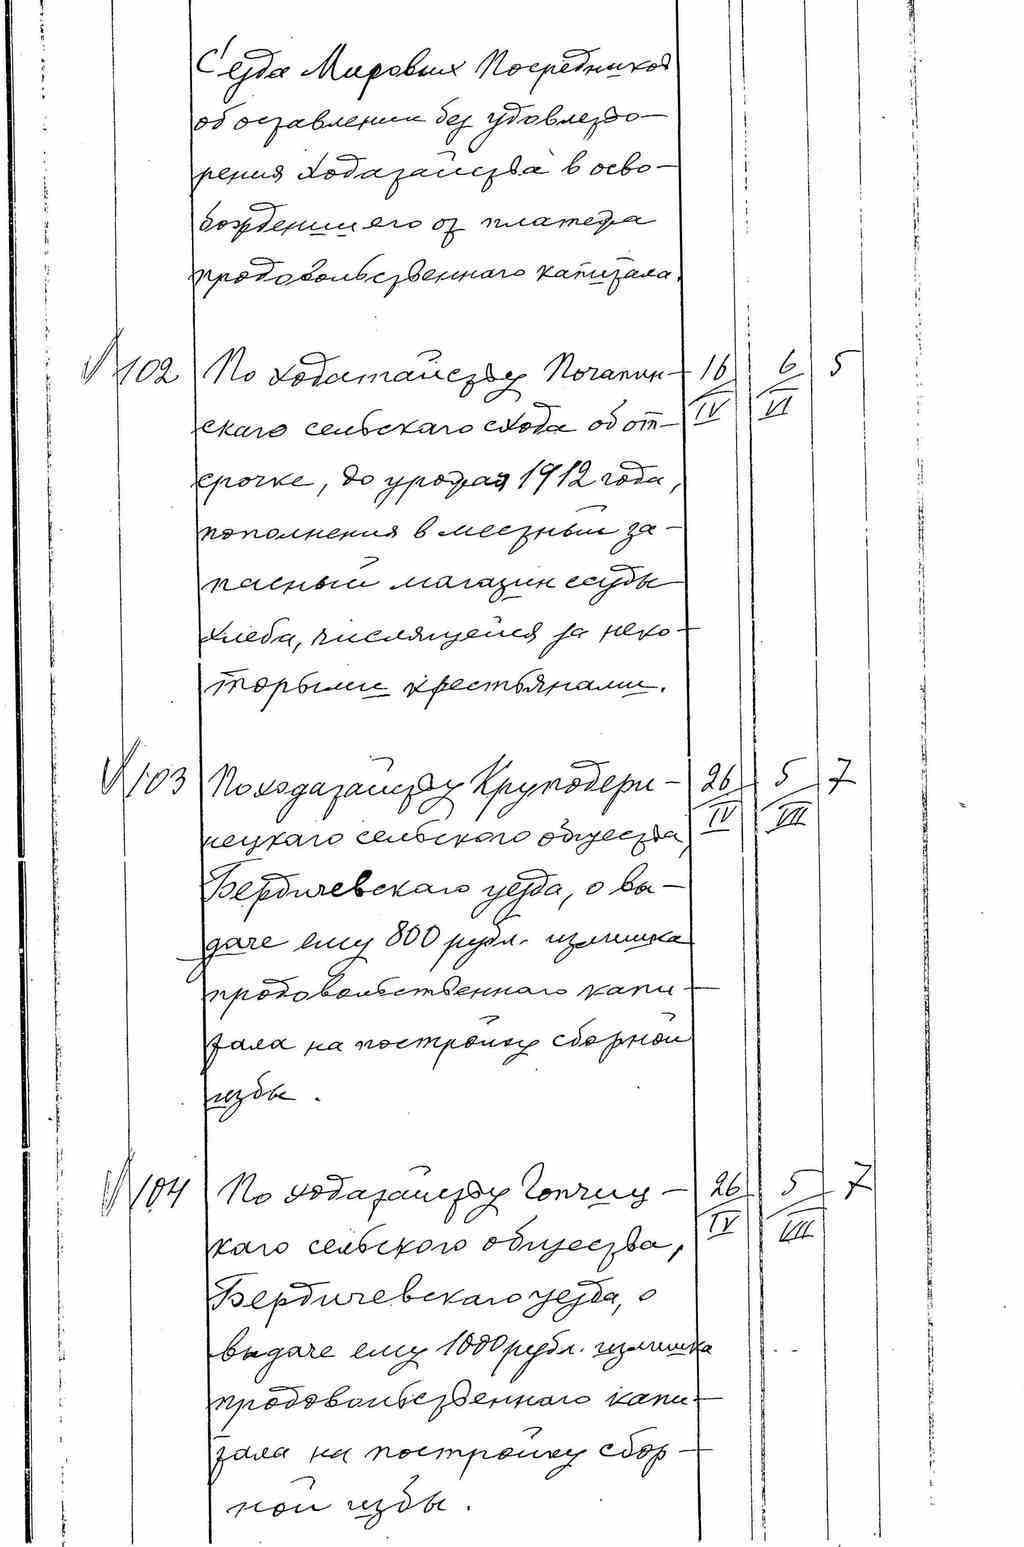 С'езда Мировых Посредников
об оставлении без удовлетво-
рения ходатайства в осво-
бождении его от платежа
продовольственнаго капитала.
V 102 По ходатайству Почапин- 16/IV 6/VI 5
скаго сельскаго схода об от-
срочке, до урожая 1912 года,
пополнения в местный за-
пасный магазин ссуды
хлеба, числящейся за неко-
торыми крестьянами.
V 103 По ходатайству Круподери- 26/IV 5/VII 7
нецкаго сельского общества,
Бердичевскаго уезда, о вы-
даче ему 800 рубл. излишка
продовольственнаго капи-
тала на постройку сборной
избы.
V 104 По ходатайству Гопчиц- 26/IV 5/VII 7
каго сельского общества,
Бердичевскаго уезда, о
выдаче ему 1000 рубл. излишка
продовольственнаго капи-
тала на постройку сбор-
ной избы.